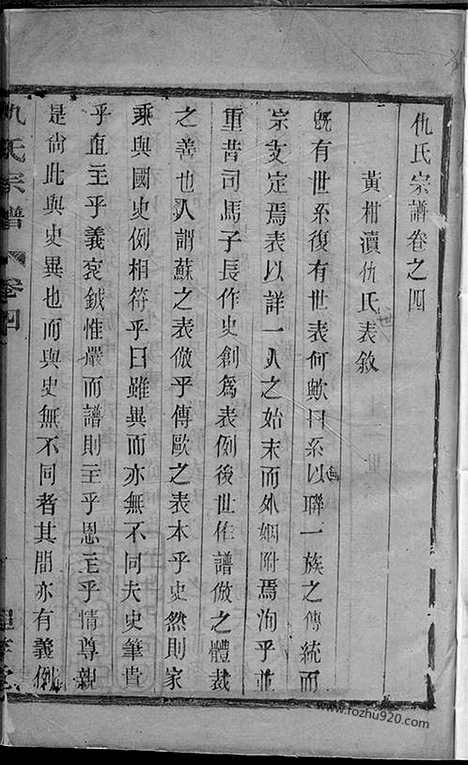 仇氏宗譜卷之四
黃柑瀆仇氏表敘
旣有世系復有世表何歟曰系以聯一族之傳統而
宗支定焉表以詳一人之始末而外姻附焉洵乎並
重昔司馬子長作史創為表例後世作譜倣之體裁
之善也人謂蘇之表倣乎傳歐之表本乎史然則家
乘與國史例相符乎曰雖異而亦無不同夫史筆貴
乎直主乎義袞鉞惟嚴而譜則主乎恩主乎情尊親
是尙此與史異也而與史無不同者其間亦有義例
仇氏宗譜 卷四
www.fozhu920.com